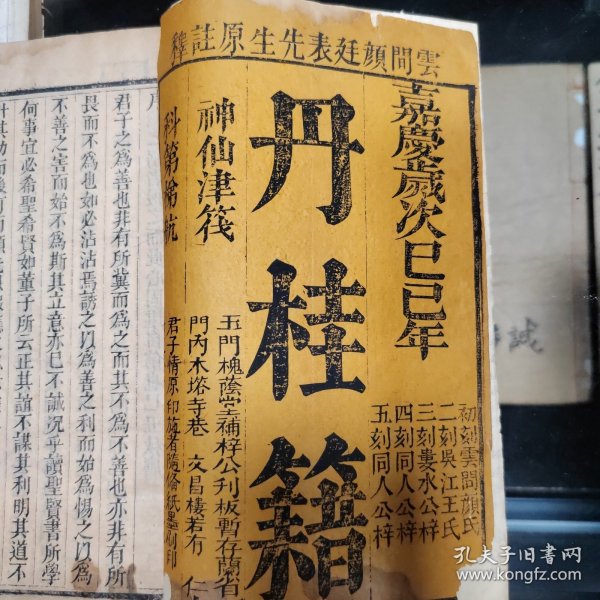 雲間顏廷表先生原註釋
嘉慶歲次己巳年
初刻雲間顏氏
二刻吳江王氏
三刻婁水公梓
四刻同人公梓
五刻同人公梓
丹桂籍
神仙津筏
科第梯航
玉門槐蔭堂補梓公刊板暫存蘭省
門內木塔寺巷 文昌樓若有 仁
君子情原印
君子之為善也非有所冀而為之而其不為不善也亦非有所
畏而不為也如必沾沾焉誘之以為善之利而始為惕之以為
不善之害而始不為斯其立意亦已不誠況乎讀聖賢書所學
何事宜必希聖希賢如董子所云正其誼不謀其利明其道不
計其功而後
孔夫子旧书网
www.kongfz.com